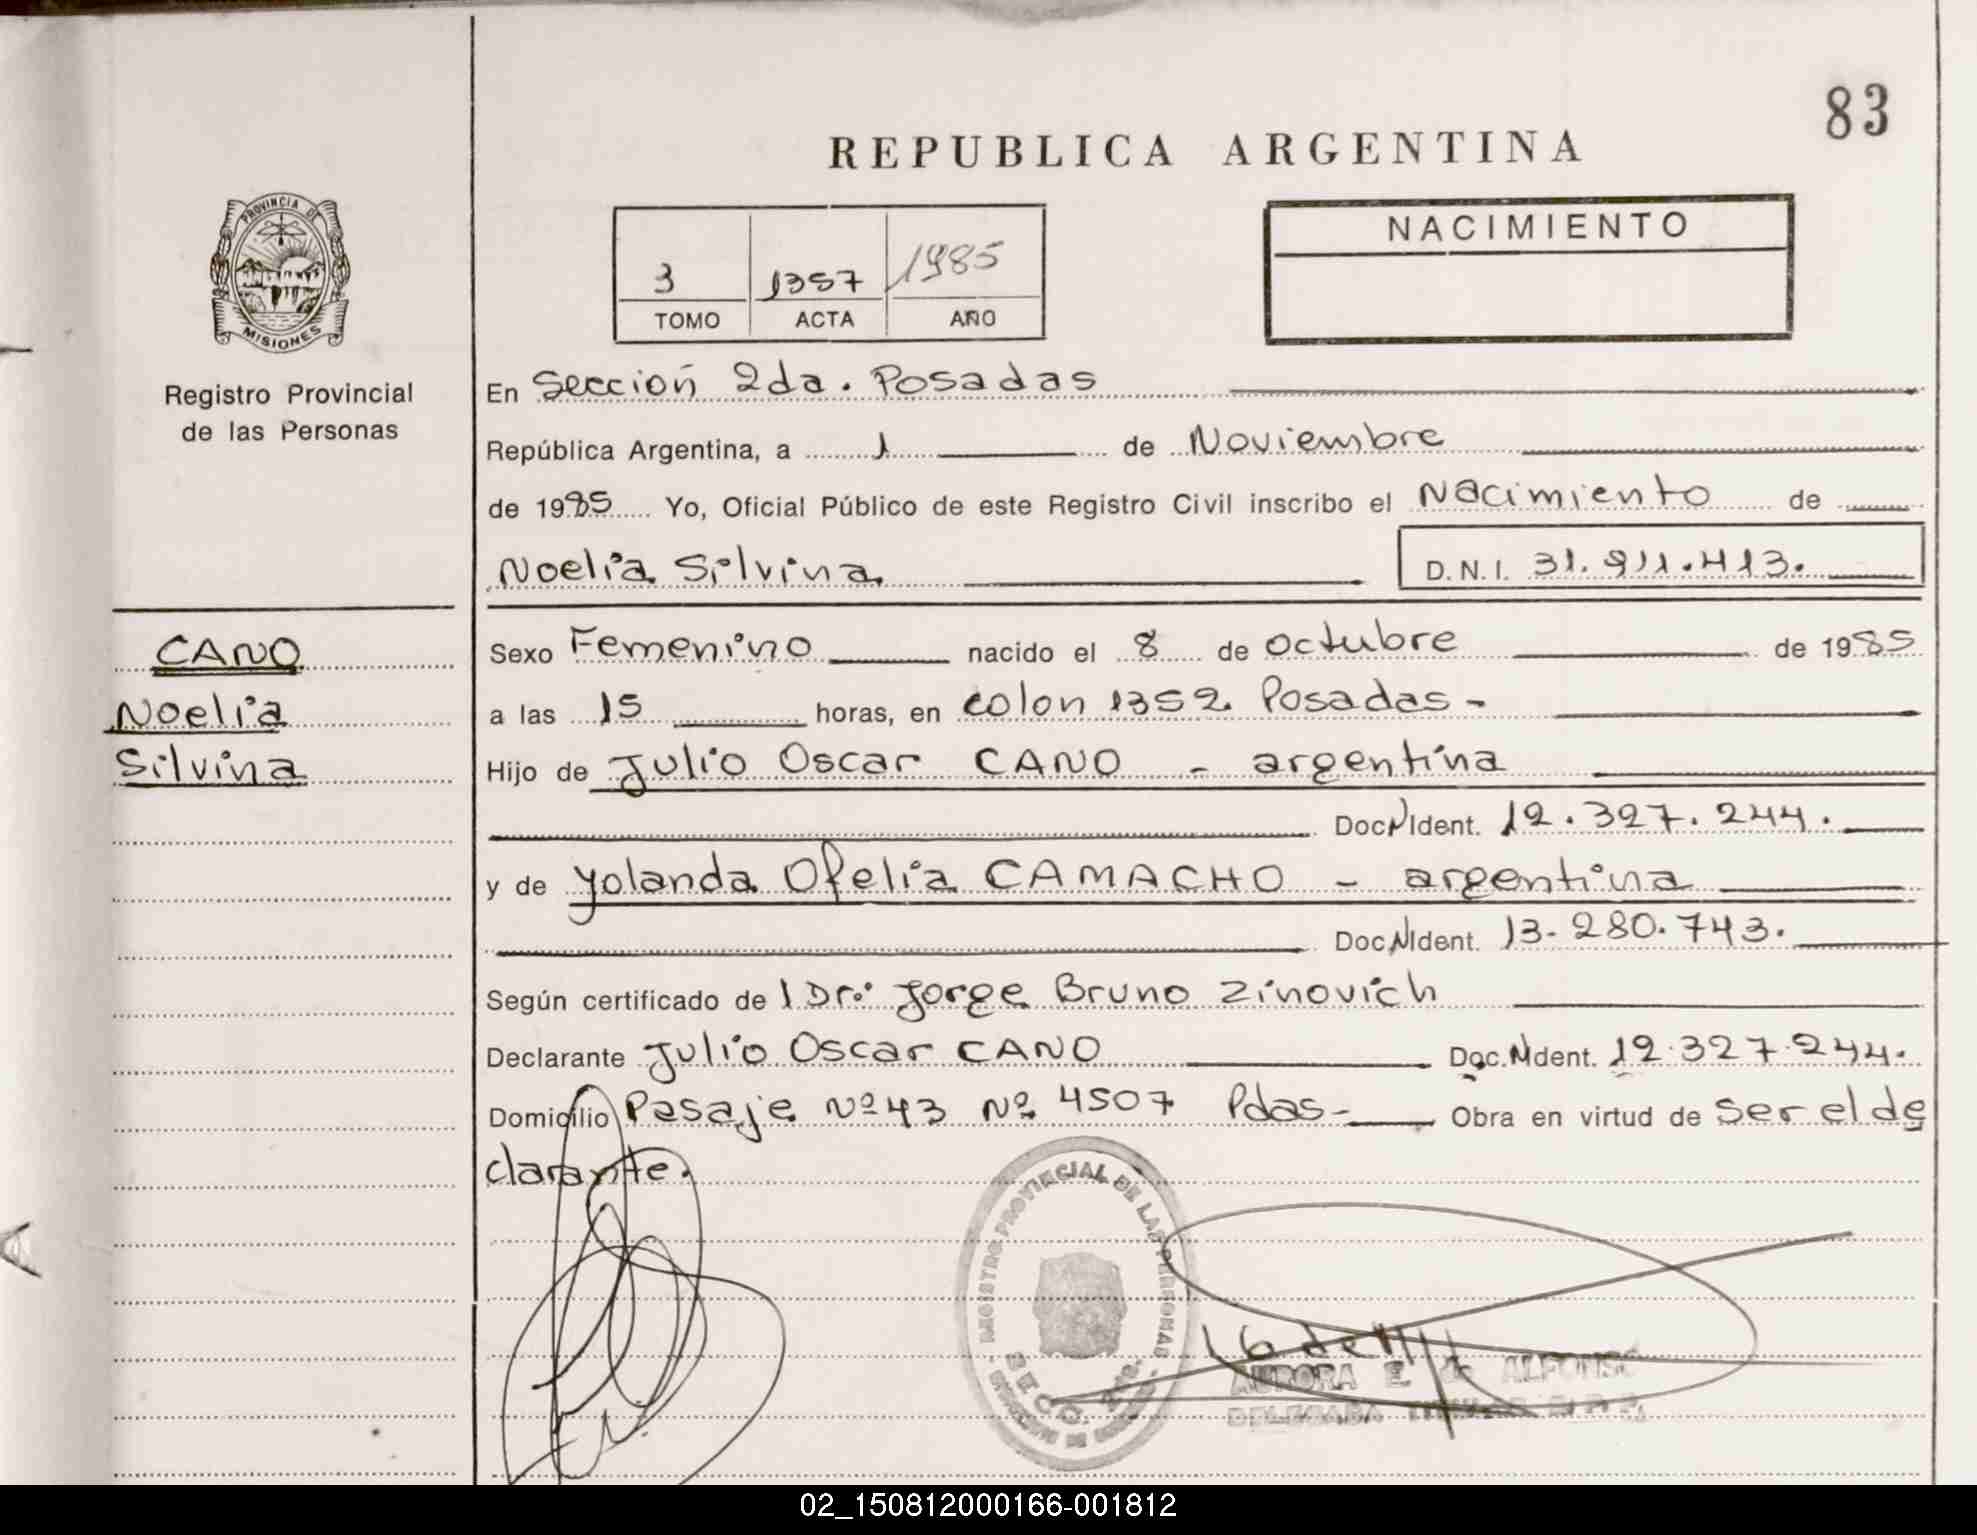 83
REPUBLICA ARGENTINA
PROVINCIA DE
MISIONES
Registro Provincial
de las Personas
3 1357 1985
TOMO ACTA AÑO
NACIMIENTO
En Sección 2da. Posadas
República Argentina, a 1 de Noviembre
de 1985 Yo, Oficial Público de este Registro Civil inscribo el Nacimiento de
Noelia Silvina D.N.I. 31.911.413.
CANO
Noelia
Silvina
Sexo Femenino nacido el 8 de octubre de 1985
a las 15 horas, en colon 1352 Posadas -
Hijo de Julio Oscar CANO - argentina
Doc N Ident. 12.327.244.
y de Yolanda Ofelia CAMACHO - argentina
Doc N Ident. 13-280.743.
Según certificado de l Dr. Jorge Bruno Zinovich
Declarante Julio Oscar CANO Doc. N Ident. 12.327.244.
Domicilio Pasaje Nº 43 Nº 4507 Pdas- Obra en virtud de ser el de
clarante.
REGISTRO PROVINCIAL DE LAS PERSONAS
SECC. 2da.
AURORA E. de ALFONSO
DELEGADA TITULAR R.P.P.
02_150812000166-001812